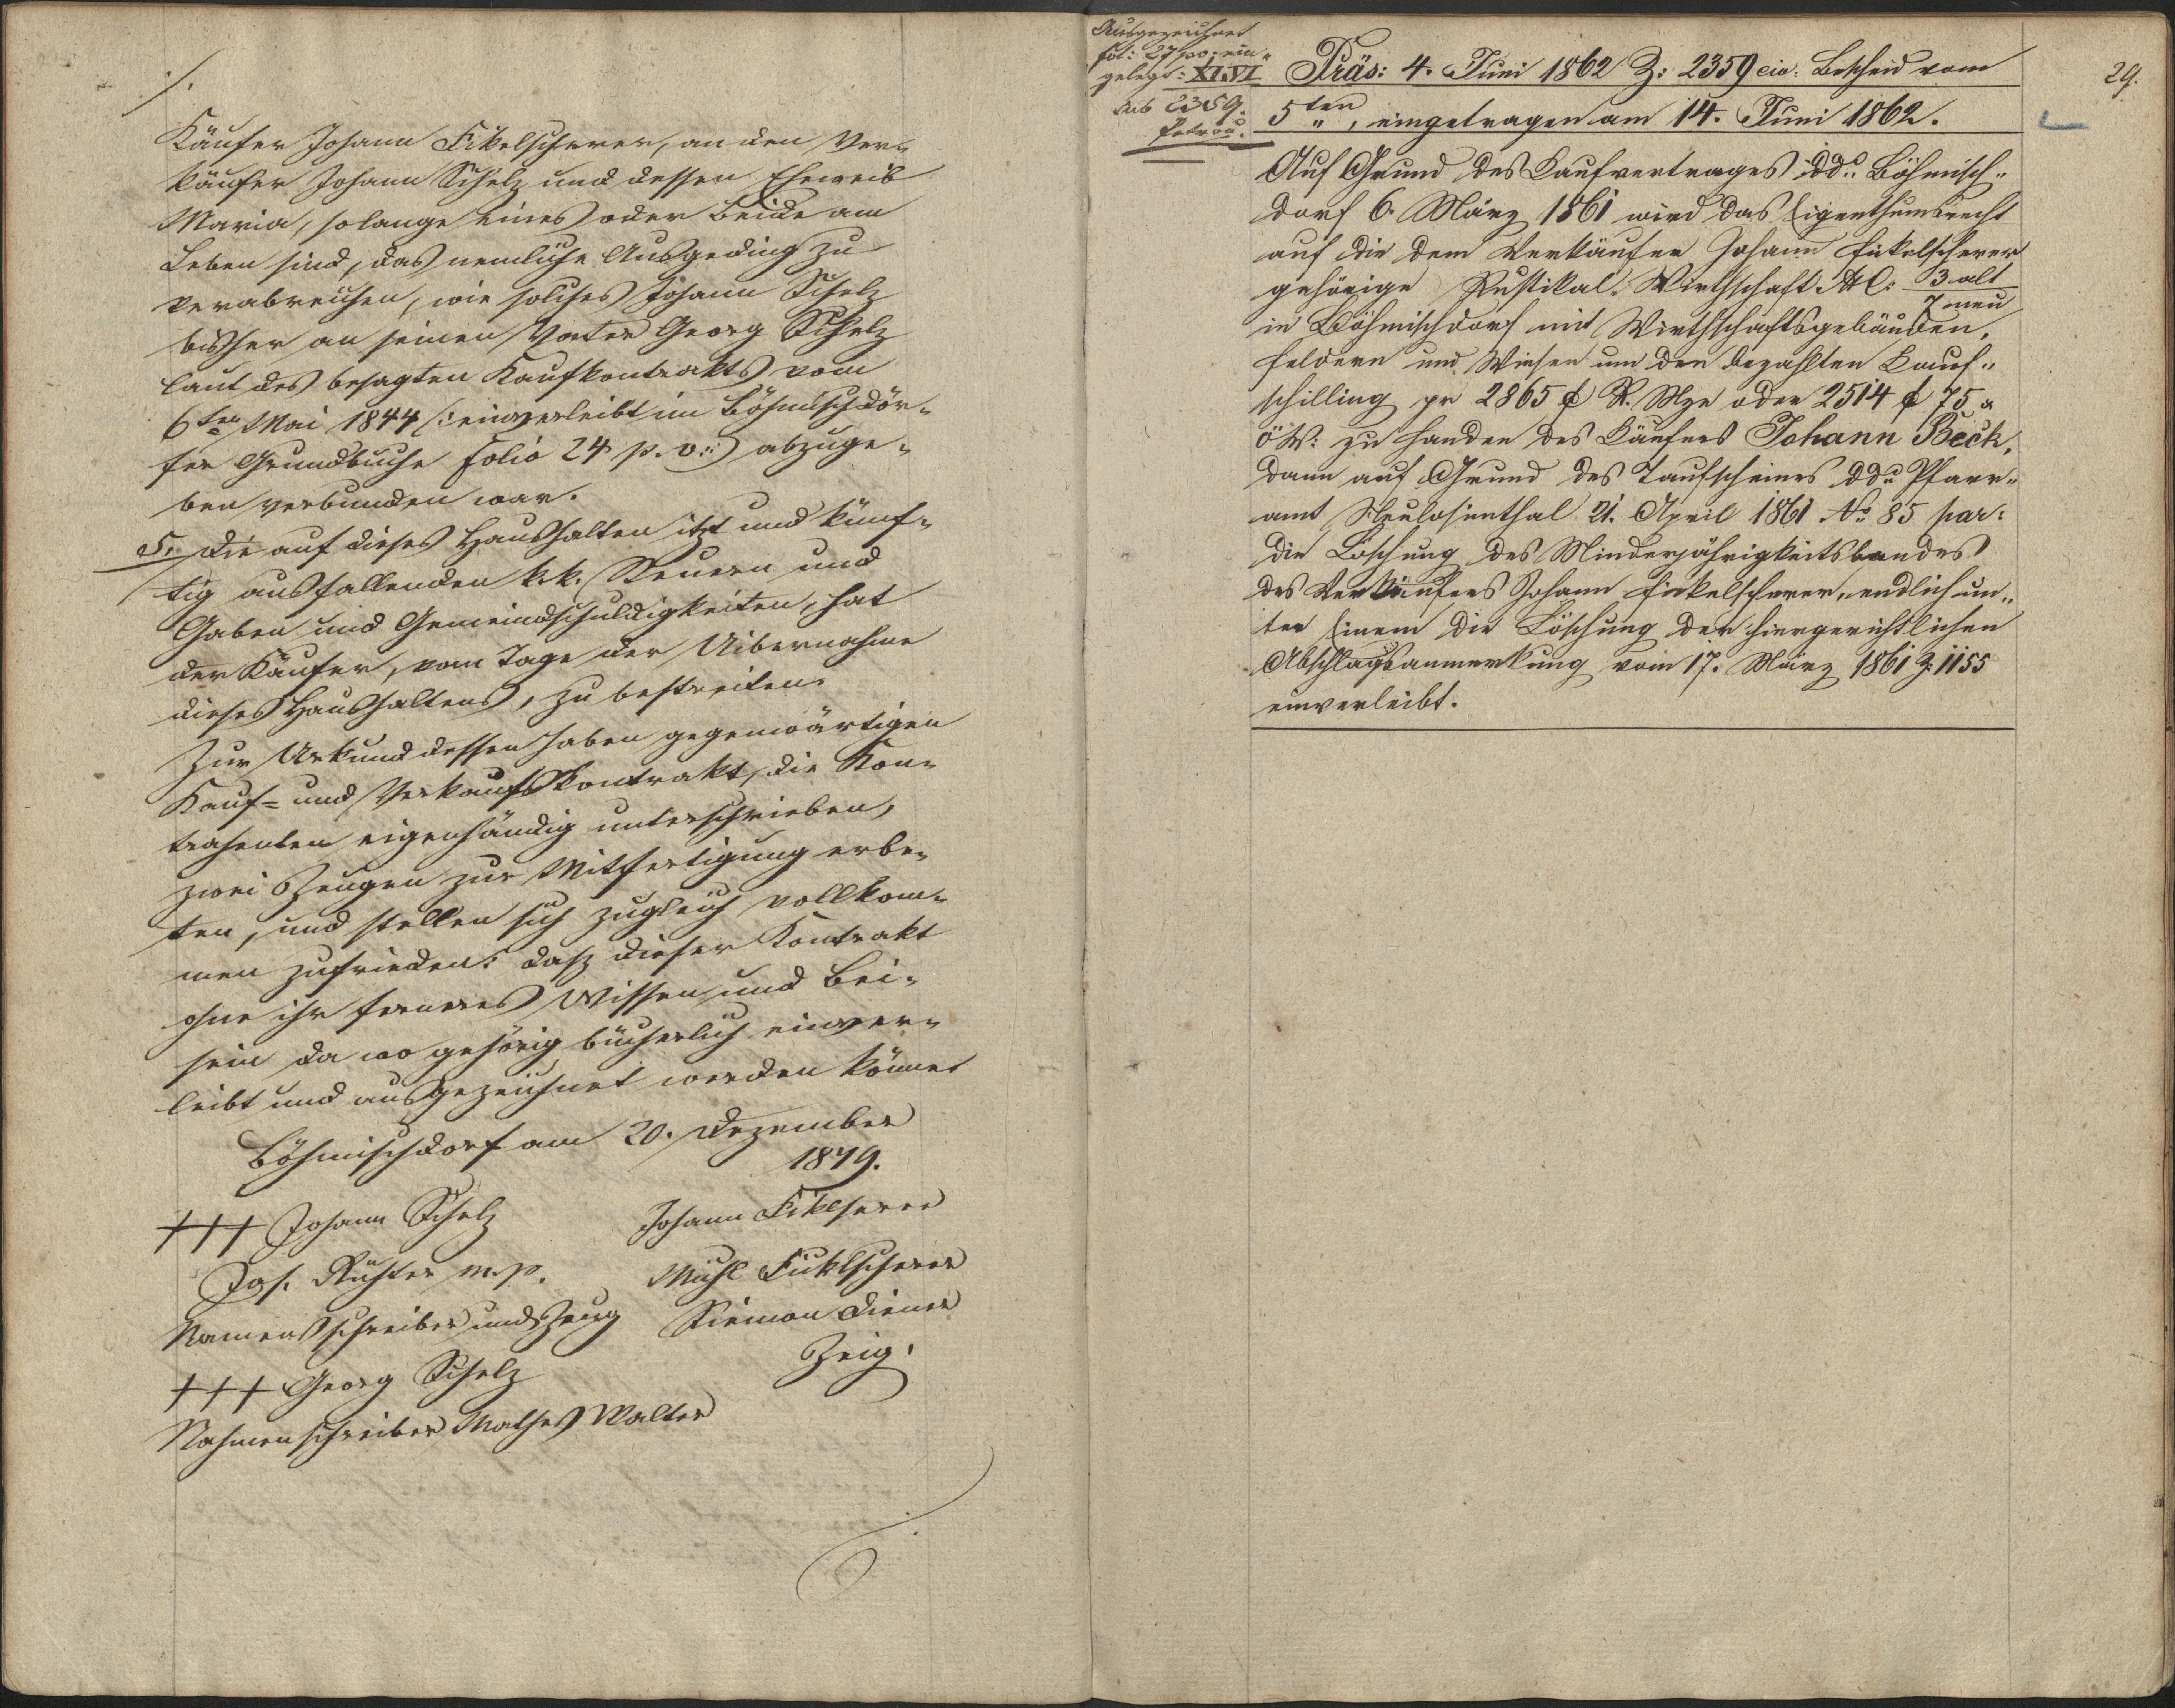 ./.
Käufer Johann Fikelscherer, an den Ver-
käufer Johann Schelz und dessen Eheweib
Maria, solange eines oder beide am
Leben sind, das nemliche Ausgeding zu
verabreichen, wie solches Johann Schelz
bisher an seinen Vater Georg Schelz
laut des besagten Kaufkontrakts vom
6ten Mai 1844 /: einverleibt im Böhmischdör-
fer Grundbuche Folio 24 p. v. :/ abzuge-
ben verbunden war.
5. Die auf dieses Haushalten itzt und künf-
tig ausfallenden k. k. Steuern und
Gaben und Gemeindschuldigkeiten, hat
der Käufer, vom Tage der Uibernahme
dieses Haushaltens, zu bestreiten.
Zur Urkund dessen haben gegenwärtigen
Kauf- und Verkaufskontrakt, die Kon-
trahenten eigenhändig unterschrieben,
zwei Zeugen zur Mitfertigung erbe-
ten, und stellen sich zugleich vollkom-
men zufrieden: daß dieser Kontrakt
ohne ihr ferneres Wissen und Bei-
sein da wo gehörig bücherlich einver-
leibt und ausgezeichnet werden könne.
Böhmischdorf am 20. Dezember
1849.
+++ Johann Schelz Johann Fiklserer
Jos. Richter m. p. Michl Fücklscherer
Namensschreiber und Zeug Siemon Diener
+++ Georg Schelz Zeig.
Nahmenschreiber Mathes Walter
Ausgezeichnet
Fol: 27 po; ein-
gelegt: XI.VI
sub 2359.
29.
Präs: 4. Juni 1862 Z: 2359 civ. Bescheid vom
5ten ", eingetragen am 14. Juni 1862.
Auf Grund des Kaufvertrages ddo Böhmisch-
dorf 6. März 1861 wird das Eigenthumsrecht
auf die dem Verkäufer Johann Fikelscherer
gehörige Rustikal-Wirthschaft NC: 3 alt
7 neu
in Böhmischdorf mit Wirthschaftsgebäuden,
Feldern und Wiesen um den bezahlten Kauf-
schilling pr 2865 f R. Mze oder 2514 f 75 x
öW: zu Handen des Käufers Johann Beck,
dann auf Grund des Taufscheines ddo Pfarr-
amt Neulosimthal 21. April 1861 No 85 par:
die Löschung des Minderjährigkeitsbandes
des Verkäufers Johann Fickelscherer, endlich un-
ter Einem die Löschung der hiergerichtlichen
Abschlagsanmerkung vom 17. März 1861 Z: 1155
einverleibt.